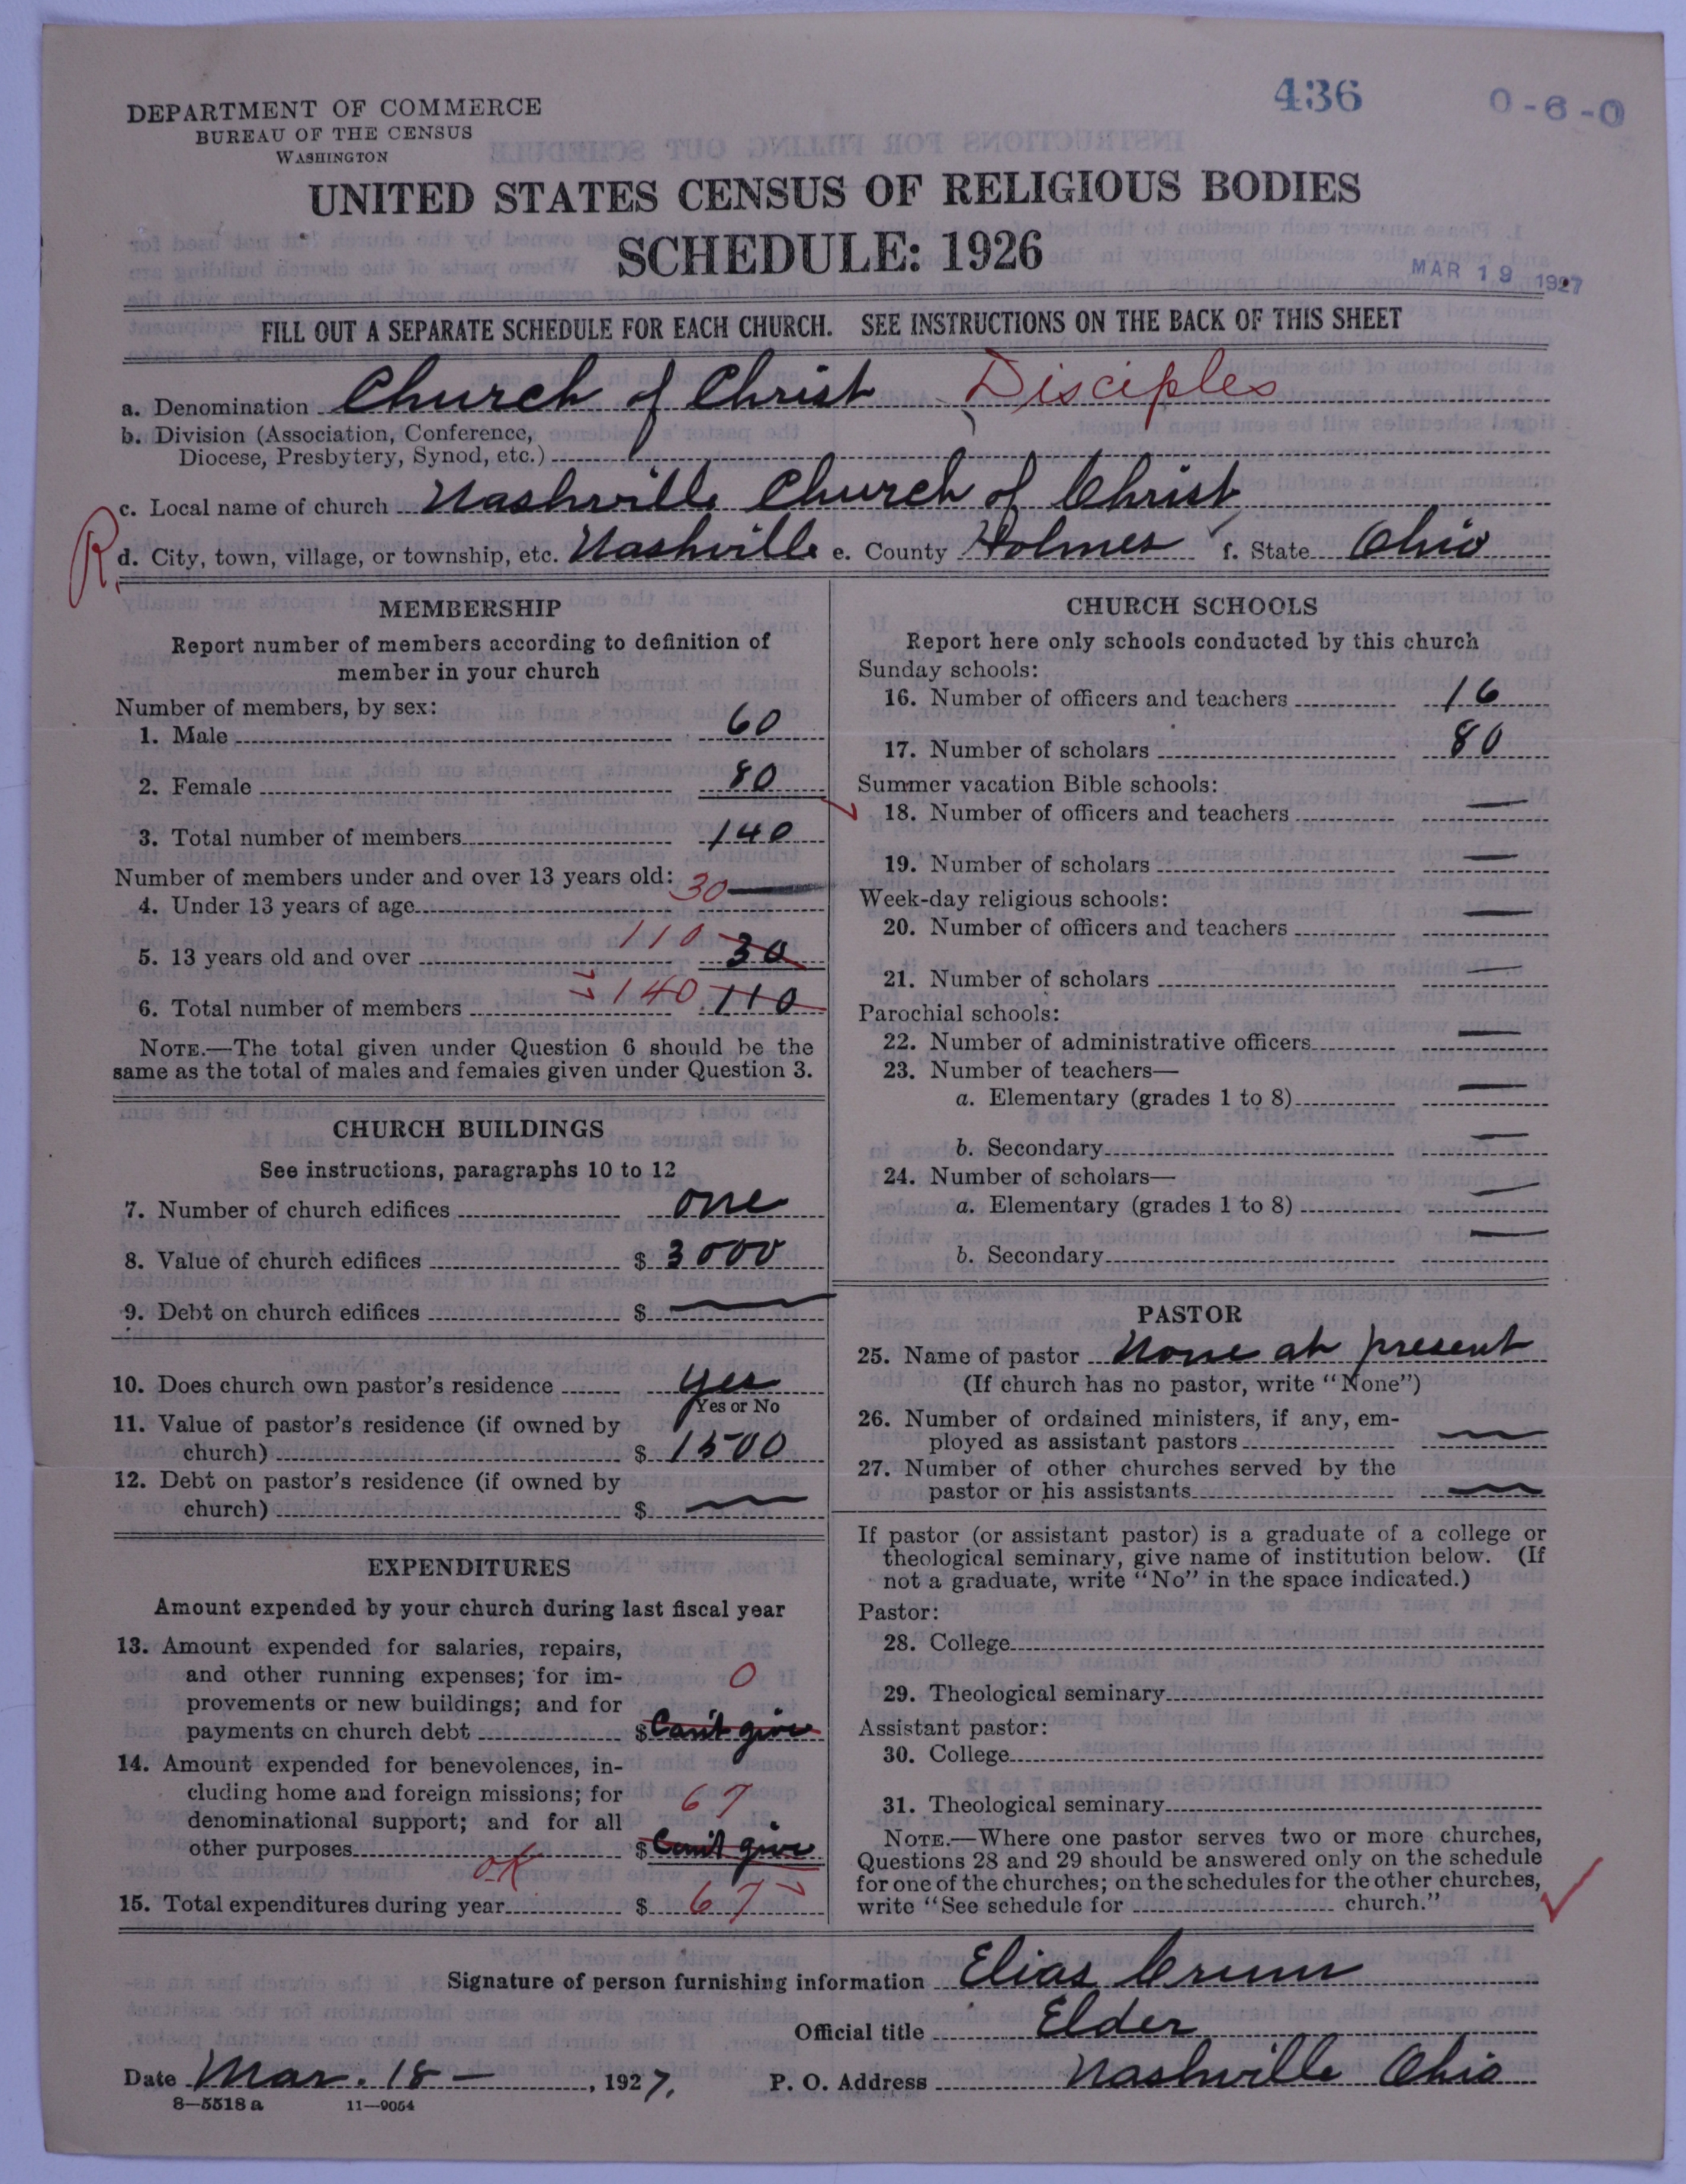 436
0-6-0
DEPARTMENT OF COMMERCE
BUREAU OF THE CENSUS
WASHINGTON
UNITED STATES CENSUS OF RELIGIOUS BODIES
SCHEDULE: 1926
MAR 19 1927
FILL OUT A SEPARATE SCHEDULE FOR EACH CHURCH. SEE INSTRUCTIONS ON THE BACK OF THIS SHEET
a. Denomination Church of Christ Disciples
b. Division (Association, Conference,
Diocese, Presbytery, Synod, etc.)
c. Local name of church Nashville Church of Christ
R. d. City, town, village, or township, etc. Nashville e. County Holmes f. State Ohio
MEMBERSHIP
Report number of members according to definition of
member in your church
Number of members, by sex:
1. Male 60
2. Female 80
3. Total number of members 140
Number of members under and over 13 years old:
4. Under 13 years of age 30
5. 13 years old and over 110 30
6. Total number of members 140 110
NOTE.—The total given under Question 6 should be the
same as the total of males and females given under Question 3.
CHURCH BUILDINGS
See instructions, paragraphs 10 to 12
7. Number of church edifices one
8. Value of church edifices $ 3000
9. Debt on church edifices $ —
10. Does church own pastor's residence yes
Yes or No
11. Value of pastor's residence (if owned by
church) $ 1500
12. Debt on pastor's residence (if owned by
church) $ —
EXPENDITURES
Amount expended by your church during last fiscal year
13. Amount expended for salaries, repairs,
and other running expenses; for im-
provements or new buildings; and for 0
payments on church debt $ Can't give
14. Amount expended for benevolences, in-
cluding home and foreign missions; for
denominational support; and for all 67
other purposes $ Can't give
OK
15. Total expenditures during year $ 67
CHURCH SCHOOLS
Report here only schools conducted by this church
Sunday schools:
16. Number of officers and teachers 16
17. Number of scholars 80
Summer vacation Bible schools:
18. Number of officers and teachers —
19. Number of scholars —
Week-day religious schools:
20. Number of officers and teachers —
21. Number of scholars —
Parochial schools:
22. Number of administrative officers —
23. Number of teachers—
a. Elementary (grades 1 to 8) —
b. Secondary —
24. Number of scholars—
a. Elementary (grades 1 to 8) —
b. Secondary —
PASTOR
25. Name of pastor None at present
(If church has no pastor, write "None")
26. Number of ordained ministers, if any, em-
ployed as assistant pastors —
27. Number of other churches served by the
pastor or his assistants —
If pastor (or assistant pastor) is a graduate of a college or
theological seminary, give name of institution below. (If
not a graduate, write "No" in the space indicated.)
Pastor:
28. College
29. Theological seminary
Assistant pastor:
30. College
31. Theological seminary
NOTE.—Where one pastor serves two or more churches,
Questions 28 and 29 should be answered only on the schedule
for one of the churches; on the schedules for the other churches,
write "See schedule for church."
Signature of person furnishing information Elias Crum
Official title Elder
Date Mar. 18 — , 1927. P. O. Address Nashville Ohio
8—5518a 11—9054